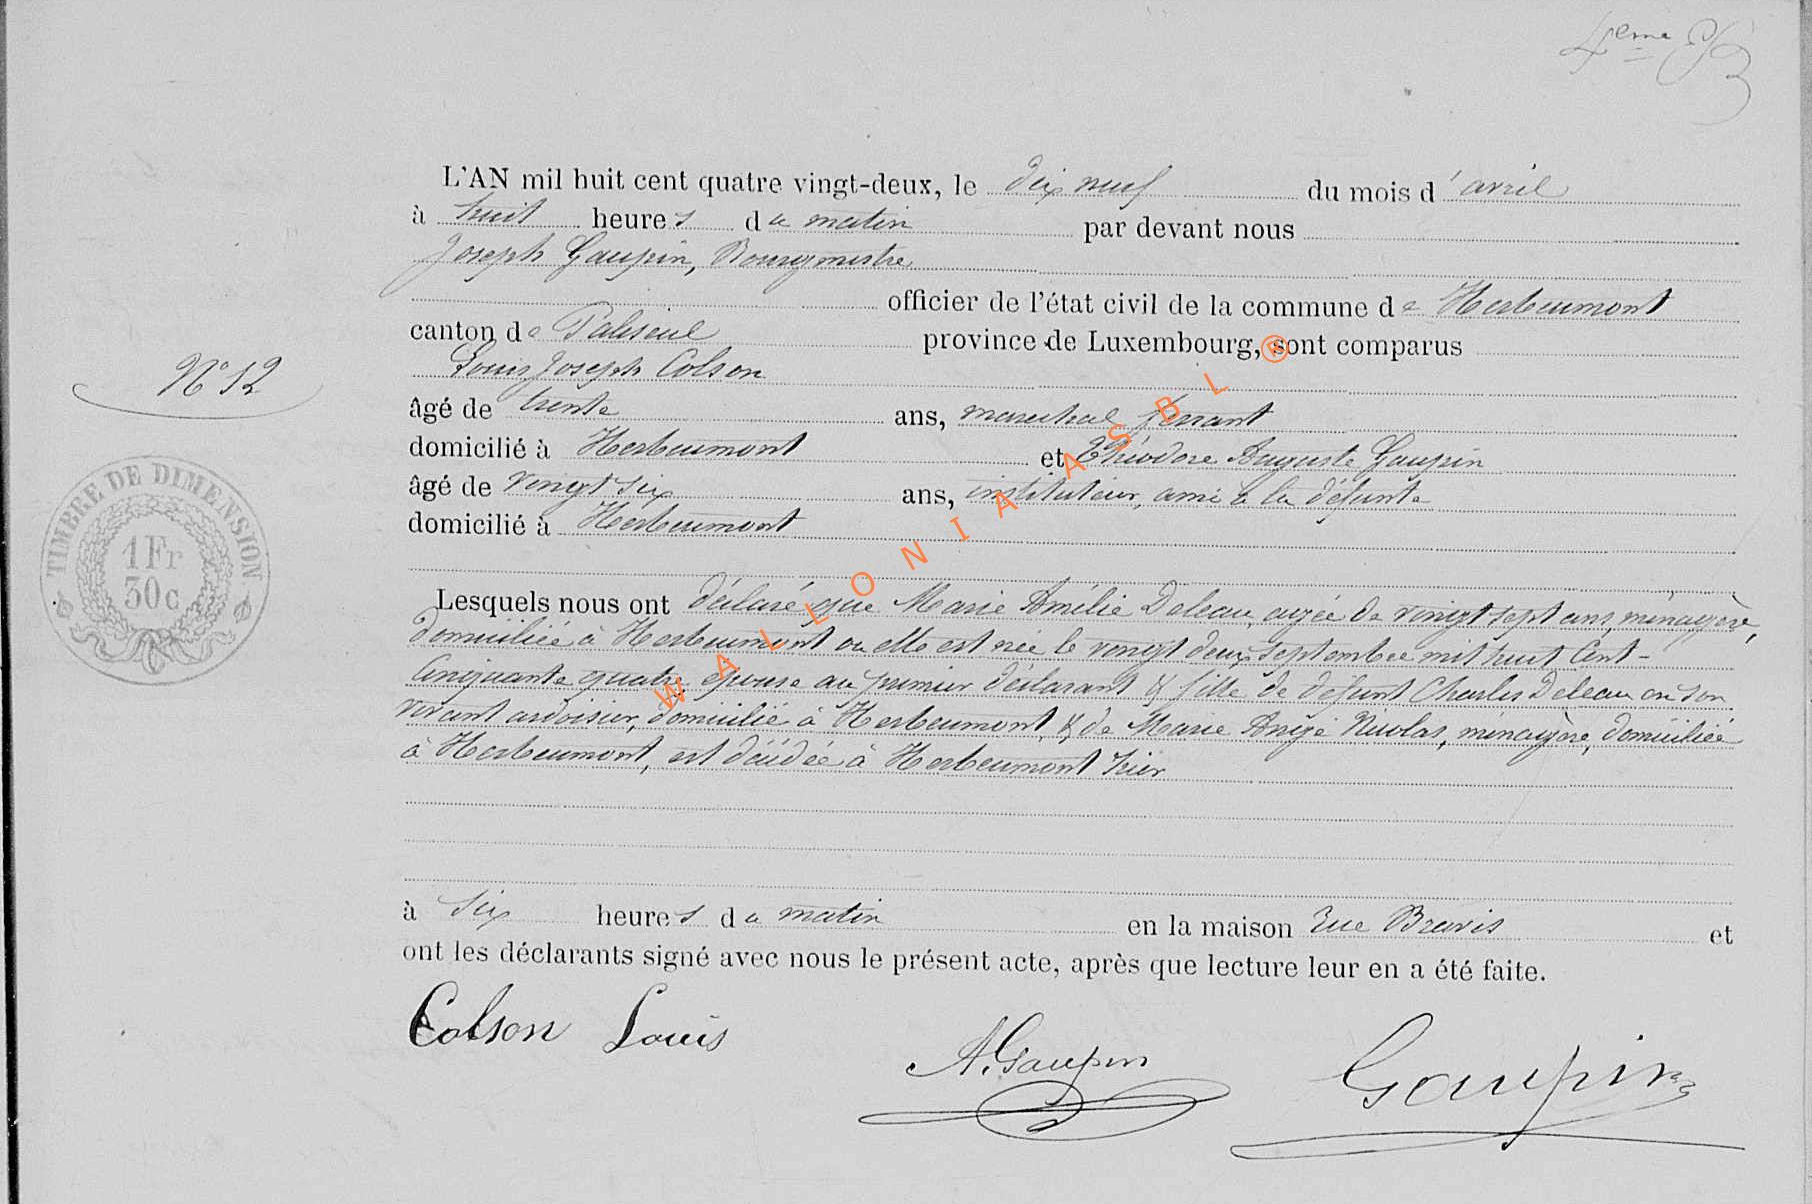 4eme
L'AN mil huit cent quatre vingt-deux, le dix neuf du mois d'avril
à huit heures du matin par devant nous
Joseph Gaupin, Bourgmestre
officier de l'état civil de la commune de Herbeumont
canton de Paliseul province de Luxembourg, sont comparus
Louis Joseph Colson
âgé de trente ans, maréchal ferrant
domicilié à Herbeumont et Théodore Auguste Gaupin
âgé de vingt six ans, instituteur, ami à la défunte
domicilié à Herbeumont
N° 12
TIMBRE DE DIMENSION
1 Fr
30c
Lesquels nous ont déclaré que Marie Amélie Deleau, agée de vingt sept ans, ménagère,
domiciliée à Herbeumont ou elle est née le vingt deux Septembre mil huit Cent-
Cinquante quatre, épouse au premier déclarant & fille de défunt Charles Deleau en son
vivant ardoisier, domicilié à Herbeumont, & de Marie Nicolas, ménagère, domiciliée
à Herbeumont, est décédée à Herbeumont hier
à six heures du matin en la maison rue Bravis et
ont les déclarants signé avec nous le présent acte, après que lecture leur en a été faite.
Colson Louis
A. Gaupin
Gaupin
WALLONIA ASBL ®